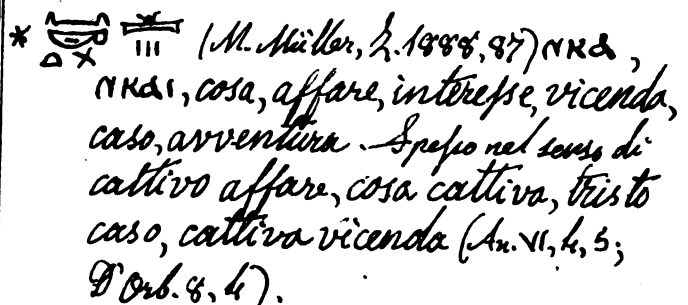 * (M. Müller, Z. 1888, 87) ⲛⲕⲁ,
ⲛⲕⲁⲓ, cosa, affare, intereſse, vicenda,
caso, avventura. Speſso nel senso di
cattivo affare, cosa cattiva, tristo
caso, cattiva vicenda (An. VI, 4, 5;
D'Orb. 8, 4).